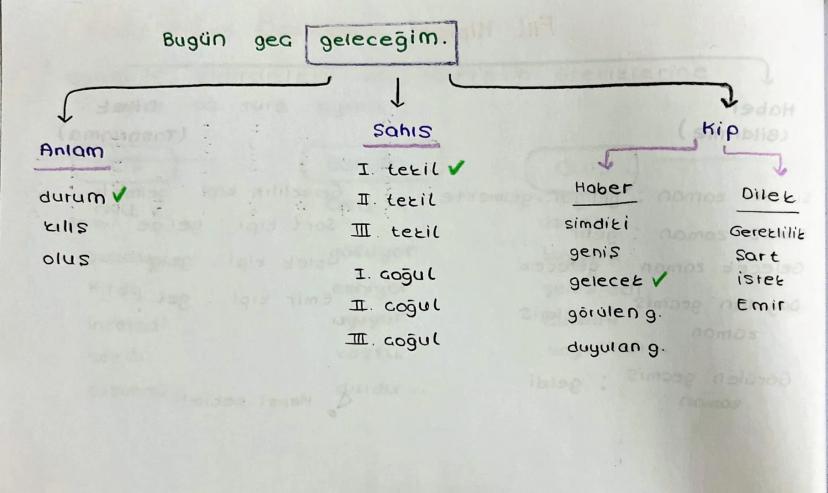 Bugün gec geleceğim.
Anlam
durum ✓
kılıs
olus
Sahıs
I. tekil ✓
II. tekil
III. tekil
I. coğul
II. coğul
III. coğul
Kip
Haber
simdiki
genis
gelecek ✓
görülen g.
duyulan g.
Dilek
Gereklilik
Sart
istek
Emir